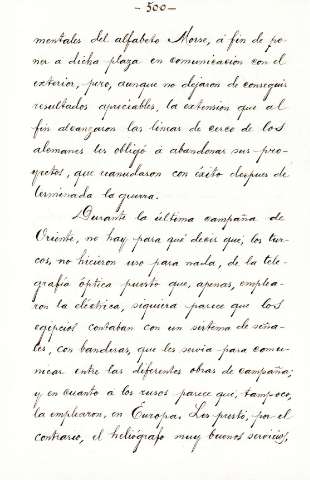 - 500 -
mentales del alfabeto Morse, á fin de po-
ner a dicha plaza en comunicacion con el
exterior, pero, aunque no dejaron de conseguir
resultados apreciables, la extension que al
fin alcanzaron las lineas de cerco de los
alemanes les obligó a abandonar sus pro-
yectos, que reanudaron con éxito despues de
terminada la guerra.
Durante la última campaña de
Oriente, no hay para qué decir que, los tur-
cos, no hicieron uso para nada, de la tele-
grafía óptica puesto que, apenas, emplea-
ron la eléctrica, siquiera parece que los
egipcios contaban con un sistema de seña-
les, con banderas, que les servía para comu-
nicar entre las diferentes obras de campaña;
y en cuanto a los rusos parece que, tampoco,
la emplearon, en Europa. Les prestó, por el
contrario, el heliógrafo muy buenos servicios,